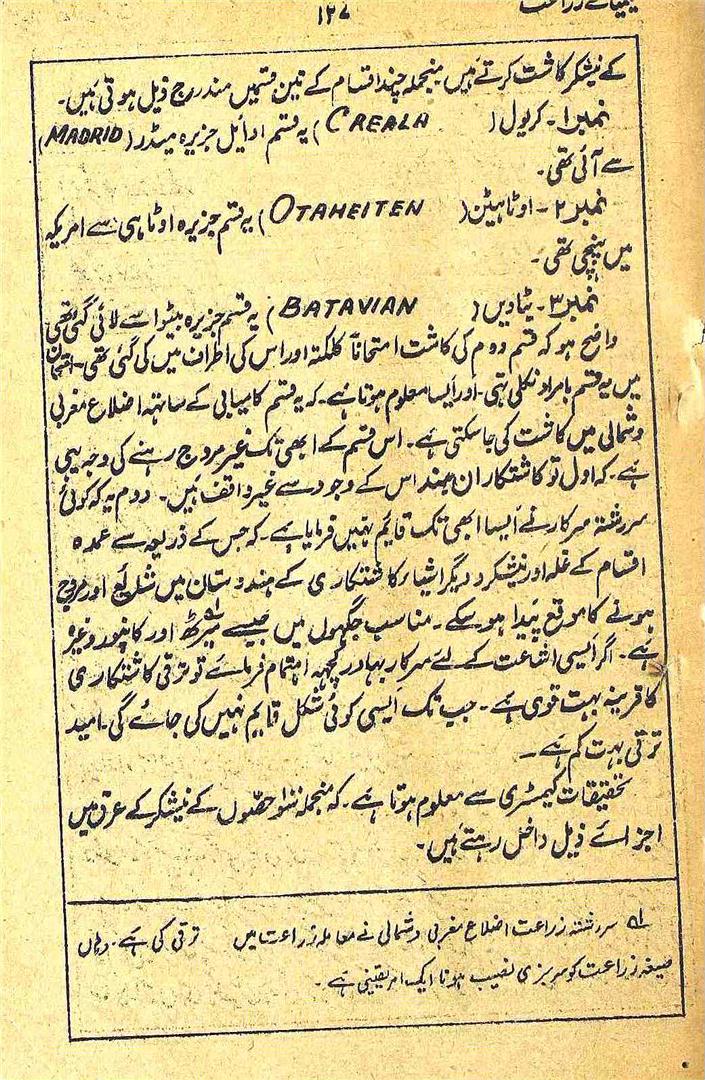 ۱۲۷
کے نیشکر کاشت کرتے ہیں منجملہ چند اقسام کے تین قسمیں مندرج ذیل ہوتی ہیں۔
نمبر۱۔ کریول (CREALA) یہ قسم اوائل جزیرہ میڈر (MADRID)
سے آئی تھی۔
نمبر۲۔ اوٹاہیٹن (OTAHEITEN) یہ قسم جزیرہ اوٹاہی سے امریکہ
میں پہنچی تھی۔
نمبر۳۔ بٹاوین (BATAVIAN) یہ قسم جزیرہ بیٹوا سے لائی گئی تھی
واضح ہو کہ قسم دوم کی کاشت امتحاناً کلکتہ اور اس کی اطراف میں کی گئی تھی۔ امتحان
میں یہ قسم بامراد نکلی تہی۔ اور ایسا معلوم ہوتا ہے۔ کہ یہ قسم کامیابی کے ساتہہ اضلاع مغربی
وشمالی میں کاشت کی جاسکتی ہے۔ اس قسم کے ابھی تک غیر مروج رہنے کی وجہ یہی
ہے۔ کہ اول تو کاشتکاران ہند اس کے وجود سے غیر واقف ہیں۔ دوم یہ کہ کوئی
سررشتہ سرکار نے ایسا ابھی تک قایم نہیں فرمایا ہے۔ کہ جس کے ذریعہ سے عمدہ
اقسام کے غلہ اور نیشکر و دیگر اشیاء کاشتکاری کے ہندوستان میں شایع اور مروج
ہونے کا موقع پیدا ہو سکے۔ مناسب جگہوں میں جیسے میرٹھ اور کانپور وغیرہ
ہے۔ اگر ایسی اشاعت کے لئے سرکار بہادر کچہہ اہتمام فرمائے تو ترقی کاشتکاری
کا قرینہ بہت قوی ہے۔ جب تک ایسی کوئی شکل قایم نہیں کی جائے گی۔ امید
ترقی بہت کم ہے۔
تحقیقات کیمسٹری سے معلوم ہوتا ہے۔ کہ منجملہ سو حصّوں کے نیشکر کے عرق میں
اجزائے ذیل داخل رہتے ہیں۔
لہ سررشتہ زراعت اضلاع مغربی وشمالی نے معاملہ زراعت میں ترقی کی ہے۔ وہاں
صیغہ زراعت کو سرسبزی نصیب ہونا ایک امر یقینی ہے۔